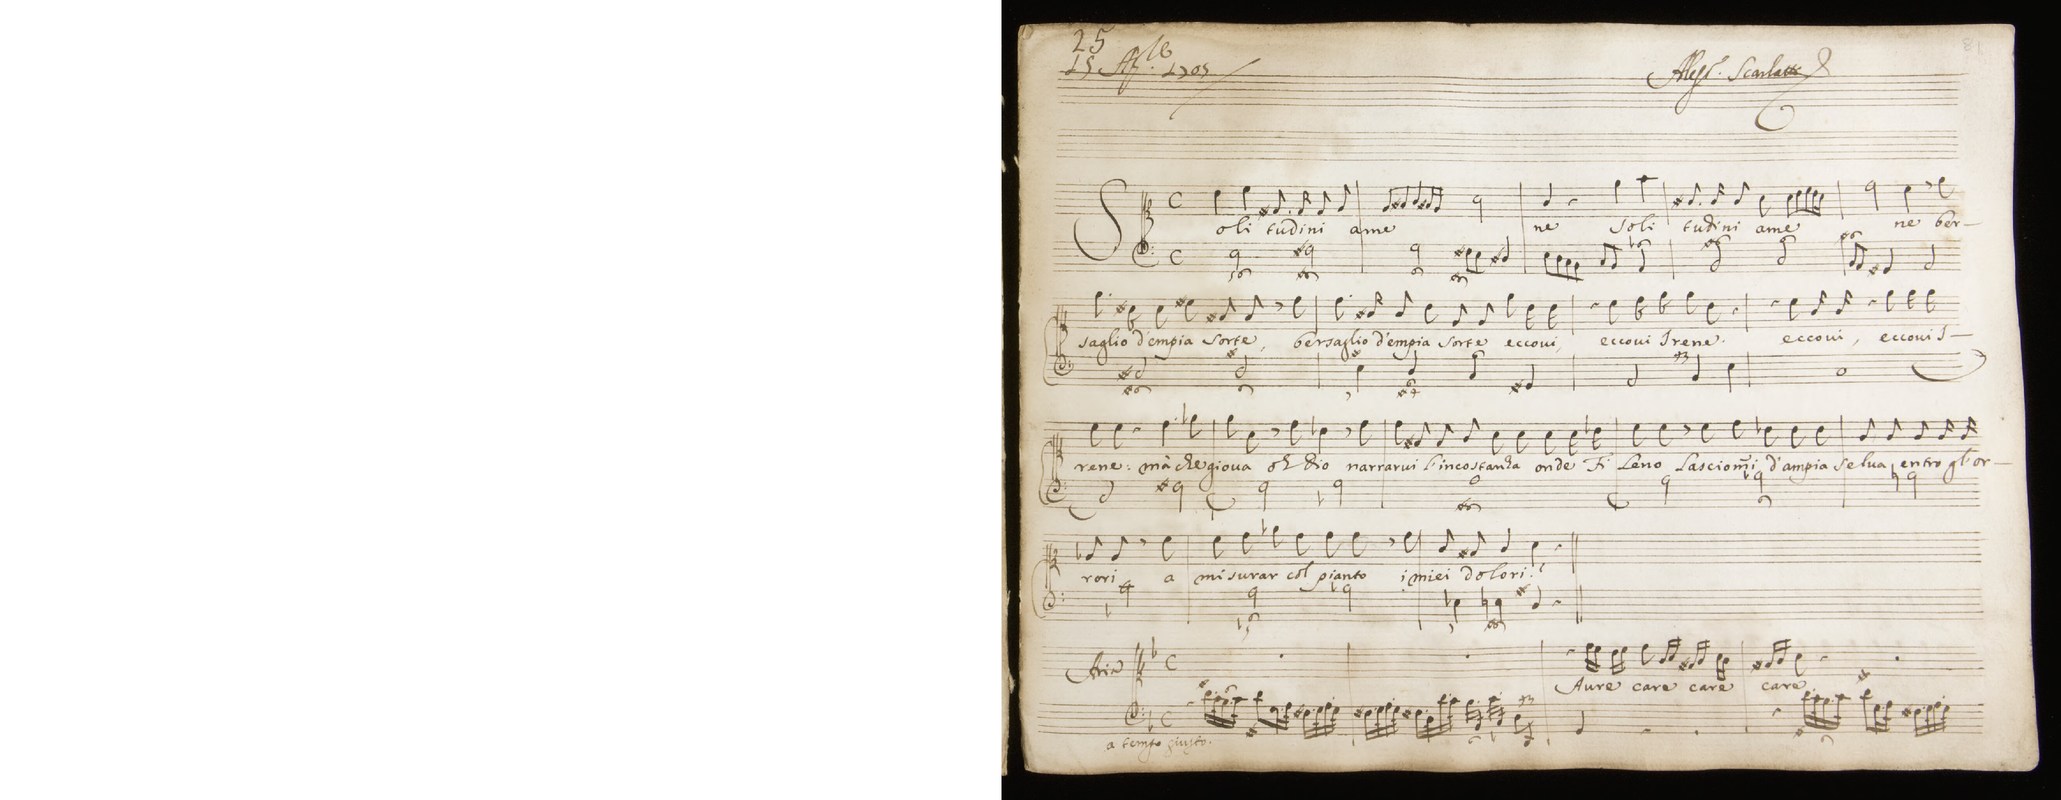 25
15 Ap.le 1705
Aless. Scarlatti
Soli tudini ame ne Soli tudini ame ne ber-
saglio d'empia sorte, bersaglio d'empia sorte eccoui, eccoui Irene. eccoui, eccoui I-
rene: mà che gioua oh Dio narrarui l'incostanza onde Fi Leno Lasciom̃i d'ampia selua entro gl'or-
rori a misurar col pianto i miei dolori.
Aria
Aure care care care
a tempo giusto.